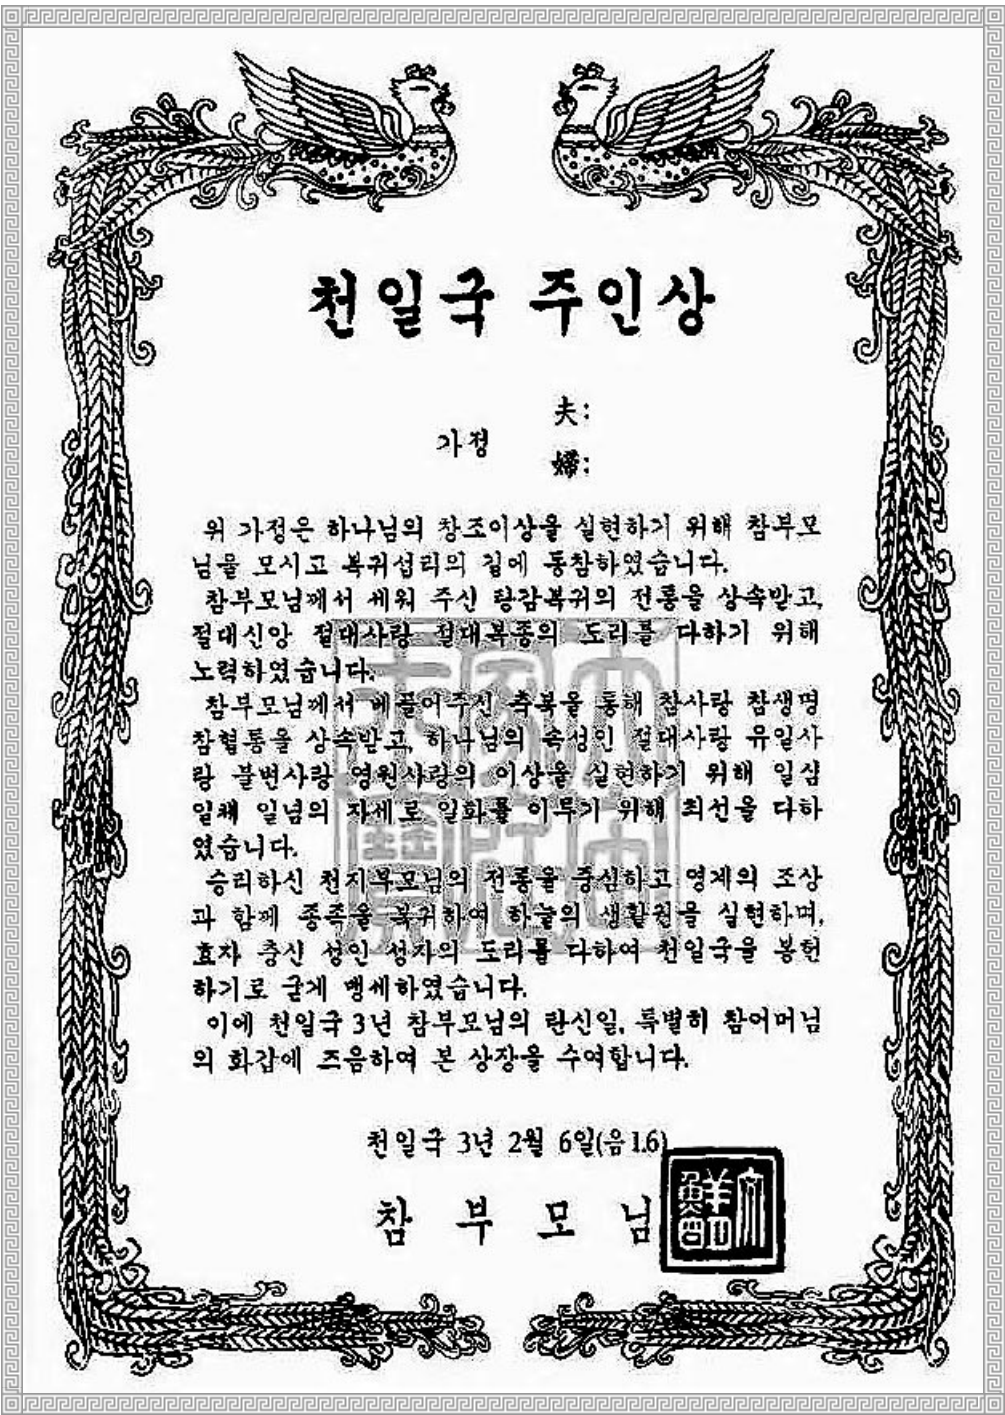 천일국 주인상
夫:
가정
婦:
위 가정은 하나님의 창조이상을 실현하기 위해 참부모
님을 모시고 복귀섭리의 길에 동참하였습니다.
참부모님께서 세워 주신 탕감복귀의 전통을 상속받고,
절대신앙 절대사랑 절대복종의 도리를 다하기 위해
노력하였습니다.
참부모님께서 베풀어주신 축복을 통해 참사랑 참생명
참혈통을 상속받고, 하나님의 속성인 절대사랑 유일사
랑 불변사랑 영원사랑의 이상을 실현하기 위해 일심
일체 일념의 자세로 일화를 이루기 위해 최선을 다하
였습니다.
승리하신 천지부모님의 전통을 중심하고 영계의 조상
과 함께 종족을 복귀하여 하늘의 생활권을 실현하며,
효자 충신 성인 성자의 도리를 다하여 천일국을 봉헌
하기로 굳게 맹세하였습니다.
이에 천일국 3년 참부모님의 탄신일, 특별히 참어머님
의 화갑에 즈음하여 본 상장을 수여합니다.
천일국 3년 2월 6일(음1.6)
참 부 모 님